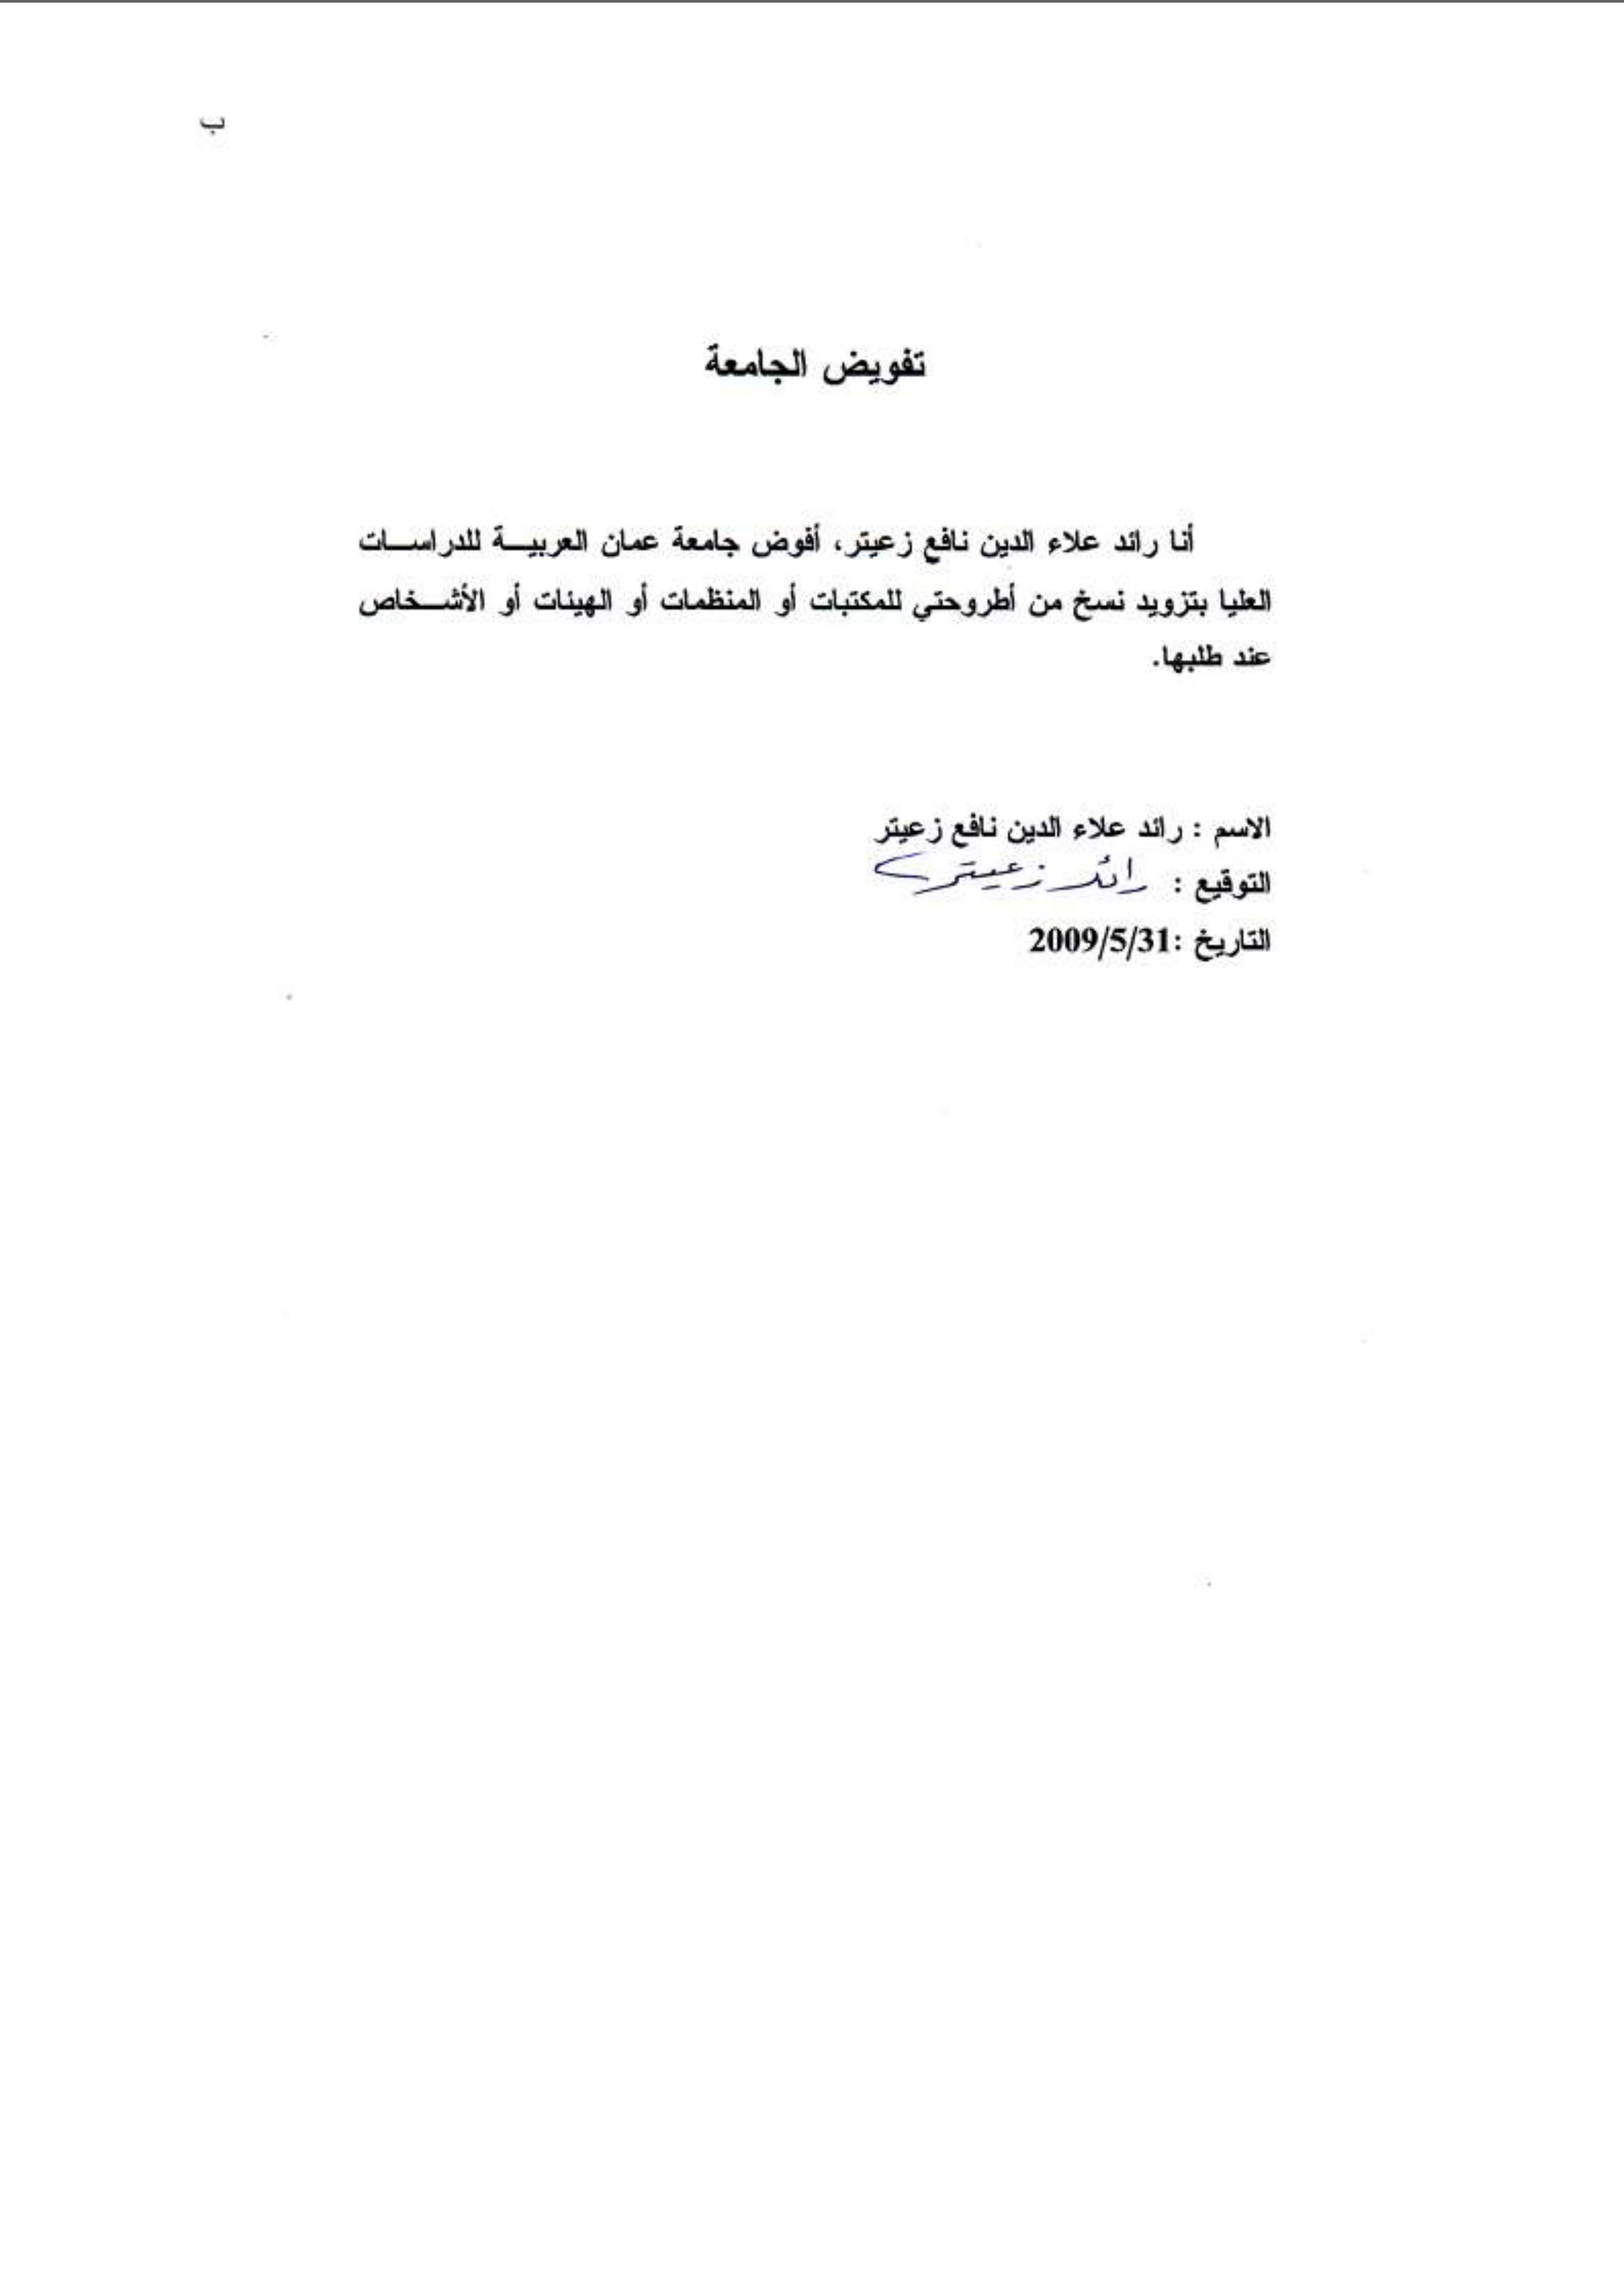 ب
تفويض الجامعة
أنا رائد علاء الدين نافع زعيتر، أفوض جامعة عمان العربيـــة للدراســـات
العليا بتزويد نسخ من أطروحتي للمكتبات أو المنظمات أو الهيئات أو الأشـــخاص
عند طلبها.
الاسم : رائد علاء الدين نافع زعيتر
التوقيع : رائد زعيتر
التاريخ :2009/5/31